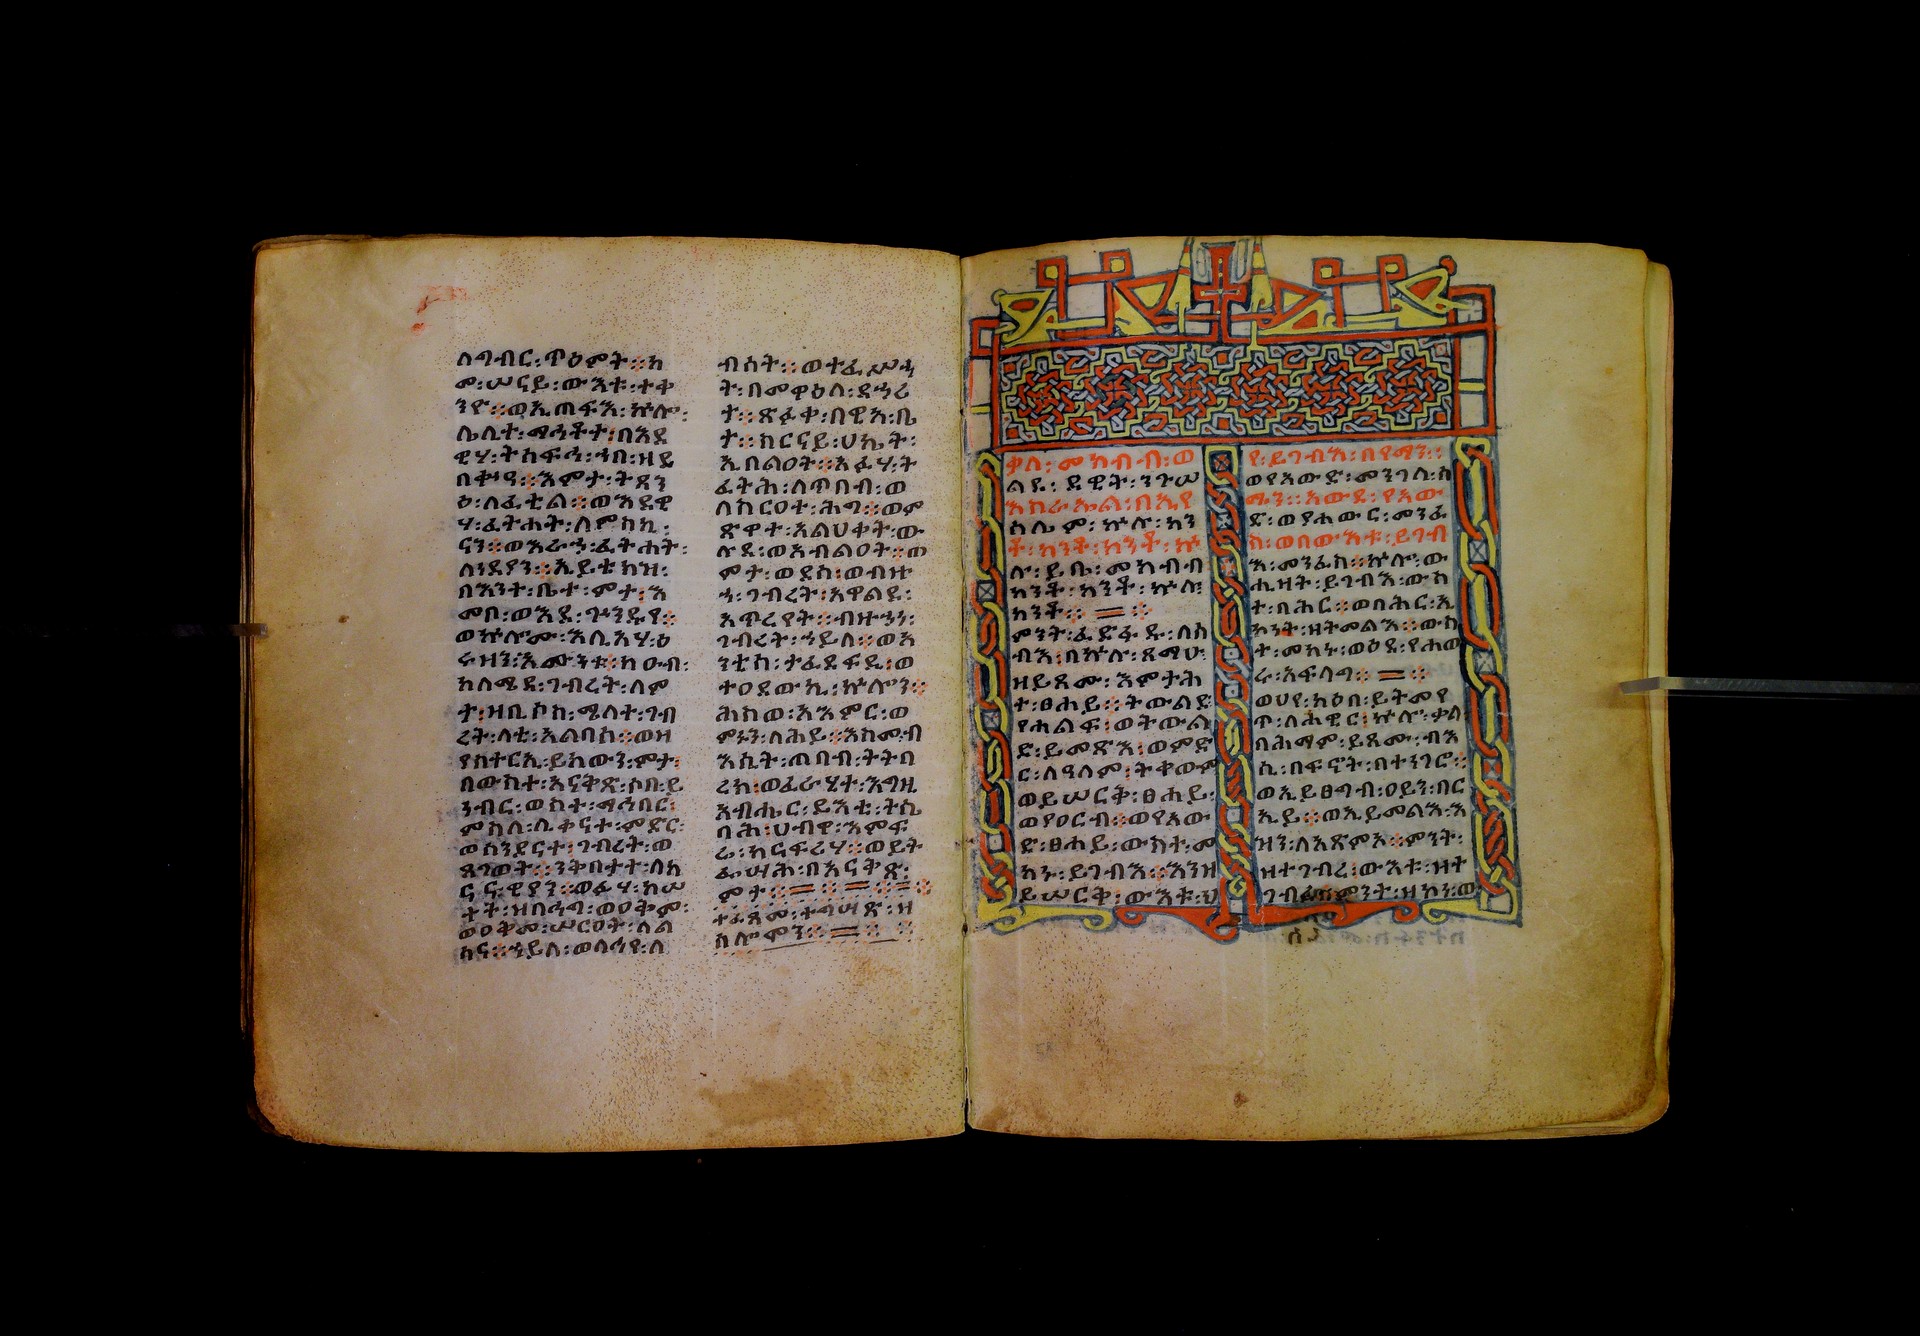 ለግብር፡ጥዕምት፡፡ከ
መ፡ሠናይ፡ውእቱ፡ተቀ
ንዮ፡፡ወኢጠፍአ፡ኵሎ፡
ሌሊተ፡ማኅቶተ፡በእደ
ዊሃ፡ትሰፍሓ፡ኀበ፡ዘይ
በቍዓ፡፡እምታ፡ትጸን
ዕ፡ለፈቲል፡፡ወእደዊ
ሃ፡ፈትሐት፡ለምስኪ፡
ናን፡፡ወእራኃ፡ፈትሐት፡
ለነደያን፡፡ኢይቴክዝ፡
በእንተ፡ቤተ፡ምታ፡እ
መቦ፡ወእደ፡ጕንዱየ፡፡
ወኵሎሙ፡እሊአሃ፡ዕ
ራዛን፡እሙንቱ፡፡ክዑብ፡
ክለሜደ፡ገብረት፡ለም
ታ፡ዘቢሶስ፡ሜላት፡ገብ
ረት፡ላቲ፡አልባሰ፡፡ወዘ
ያስተርኢ፡ይከውን፡ምታ፡
በውስተ፡አናቅጽ፡ሶበ፡ይ
ነብር፡ውስተ፡ማኅበር፡
ምስለ፡ሊቃናተ፡ምድር፡
ወሰንደናተ፡ገብረት፡ወ
ጸገወት፡፡ንቅበታተ፡ለከ
ናናዊያን፡፡ወፊሃ፡ከሠ
ተት፡ዘበሓግ፡ወዐቅም፡
ወዐቅመ፡ሠርዐት፡ለል
ሳና፡፡ኀይለ፡ወለኅየ፡ለ
ብሰት፡፡ወተፈሥሓ
ት፡በመዋዕለ፡ደኃሪ
ት፡፡ጽፉቀ፡በዊአ፡ቤ
ታ፡፡ከርናይ፡ሀኬት፡
ኢበልዐት፡፡አፊሃ፡ት
ፈትሕ፡ለጥበብ፡ወ
ለከርዐተ፡ሕግ፡፡ወም
ጽዋተ፡አልሀቀት፡ው
ሉደ፡ወአብልዐት፡፡ወ
ምታ፡ወደሰ፡ወብዙ
ኃ፡ገብረት፡አዋልደ፡
አጥረያት፡፡ብዙኃነ፡
ገብረት፡ኃይለ፡፡ወአ
ንቲሰ፡ታፈደፍዲ፡ወ
ተዐደውኪ፡ኵሎን፡፡
ሕስወ፡አእምር፡ወ
ምኑን፡ለሕይ፡፡እስመ፡ብ
እሲት፡ጠባብ፡ትትባ
ረክ፡ወፈራሂተ፡እግዚ
አብሔር፡ይእቲ፡ትሴ
ባሕ፡ሀብዋ፡እምፍ
ሬ፡ከናፍሪሃ፡፡ወይት
ፌሣሕ፡በአናቅጽ፡
ምታ፡፡
ተፈጸመ፡ተግሣጽ፡ዘ
ሰሎሞን፡፡
ቃለ፡መክብብ፡ወ
ልደ፡ዳዊት፡ንጉሠ
እስራኤል፡በኢየ
ሩሳሌም፡ኵሉ፡ከን
ቶ፡ከንቶ፡ከንቶ፡ኵ
ሉ፡ይቤ፡መክብብ
ከንቶ፡ከንቶ፡ኵሉ፡
ከንቶ፡፡
ምንት፡ፈድፋዱ፡ለሰ
ብእ፡በኵሉ፡ጻማሁ፡
ዘይጻሙ፡እምታሕ
ተ፡ፀሐይ፡፡ትውልድ
የሐልፍ፡ወትውል
ድ፡ይመጽእ፡ወምድ
ር፡ለዓለም፡ትቀውም
ወይሠርቅ፡ፀሐይ፡
ወየዐርብ፡፡ወየአው
ድ፡ፀሐይ፡ውስተ፡መ
ካኑ፡ይገብእ፡፡እንዘ
ይሠርቅ፡ውእቱ፡ህ
የ፡ይገብእ፡በየማን፡፡
ወየአውድ፡መንገለ፡ሰ
ሜን፡፡አውደ፡የአው
ድ፡ወየሐውር፡መንፈ
ስ፡ወበውእቱ፡ይገብ
እ፡መንፈስ፡፡ኵሎ፡ው
ሒዛት፡ይገብእ፡ውስ
ተ፡ባሕር፡፡ወባሕር፡ኢ
ኮነት፡ዘትመልእ፡፡ውስ
ተ፡መካኑ፡ወዕደ፡የሐው
ራ፡አፍላግ፡፡
ወህየ፡ክዕበ፡ይትመየ
ጥ፡ለሕዊር፡ኵሎ፡ቃል
በሕማም፡ይጻሙ፡ብእ
ሲ፡በፍኖት፡በተነግሮ፡፡
ወኢይፀግብ፡ዐይን፡በር
ኢይ፡፡ወኢይመልእ፡እ
ዝን፡ለአጽምኦ፡፡ምንት፡
ዝተገብረ፡ውእቱ፡ዝት
ገብረ፡፡ምንት፡ዘኮነ፡ወ